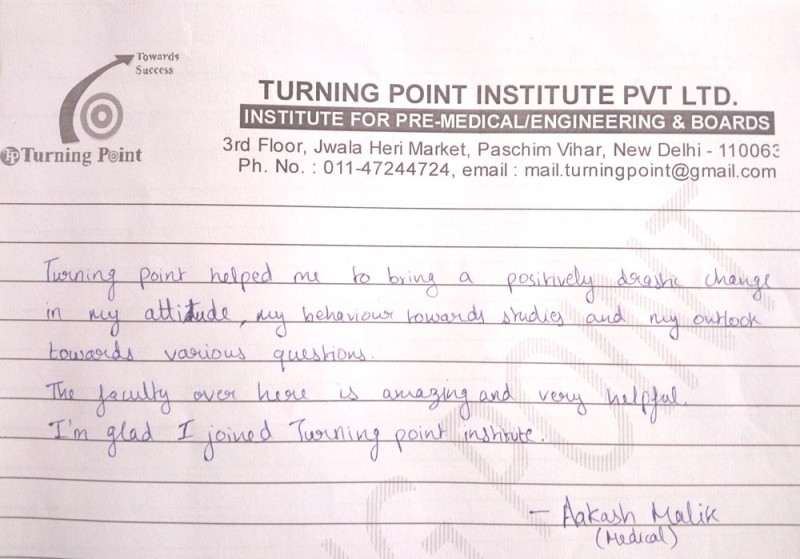 Towards
Success
Turning Point
TURNING POINT INSTITUTE PVT LTD.
INSTITUTE FOR PRE-MEDICAL/ENGINEERING & BOARDS
3rd Floor, Jwala Heri Market, Paschim Vihar, New Delhi - 110063
Ph. No. : 011-47244724, email : mail.turningpoint@gmail.com
Turning point helped me to bring a positively drastic change
in my attitude, my behaviour towards studies and my outlook
towards various questions.
The faculty over here is amazing and very helpful.
I'm glad I joined Turning point institute.
- Aakash Malik
(Medical)
G POINT